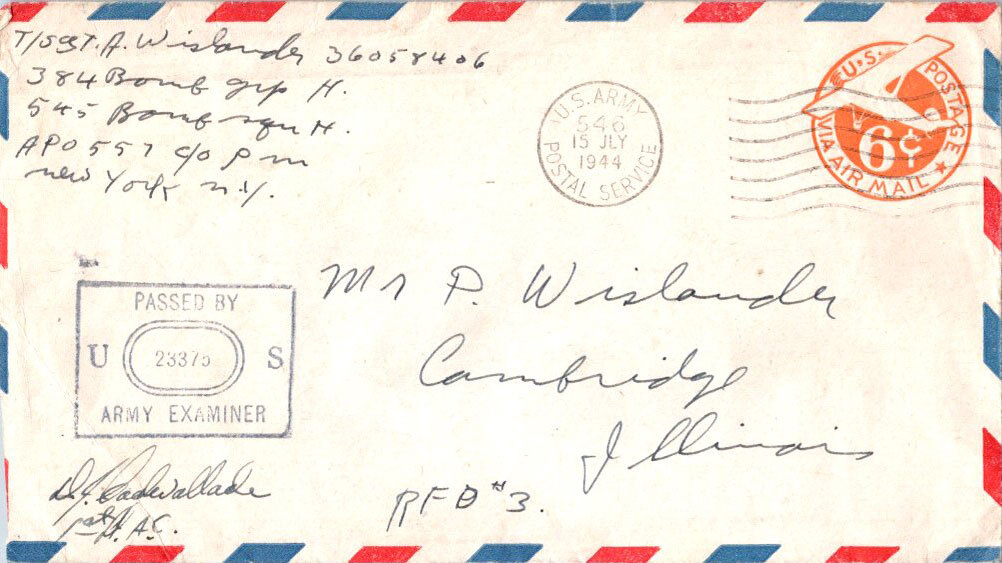 T/Sgt. A. Wislander 36058406
384 Bomb grp H.
545 Bomb sqn H.
APO 557 c/o P m
new York n.y.
U.S. ARMY
546
15 JLY
1944
POSTAL SERVICE
U.S. POSTAGE
6¢
VIA AIR MAIL
Mr P. Wislander
Cambridge
Illinois
RFD #3.
PASSED BY
U 23375 S
ARMY EXAMINER
D.J. Cadwallade
1st Lt. A.C.